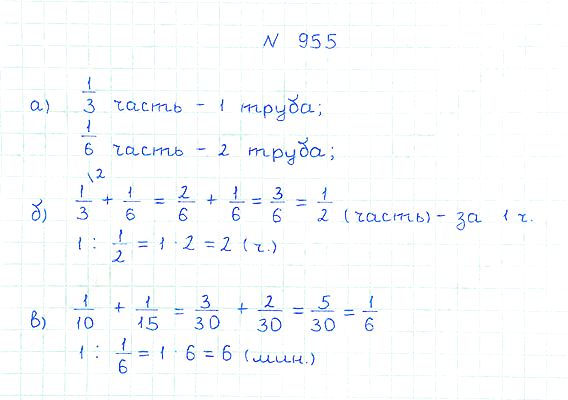 N 955
а) 1/3 часть - 1 труба;
1/6 часть - 2 труба;
б) 1/3 \2 + 1/6 = 2/6 + 1/6 = 3/6 = 1/2 (часть) - за 1 ч.
1 : 1/2 = 1 · 2 = 2 (ч.)
в) 1/10 + 1/15 = 3/30 + 2/30 = 5/30 = 1/6
1 : 1/6 = 1 · 6 = 6 (мин.)